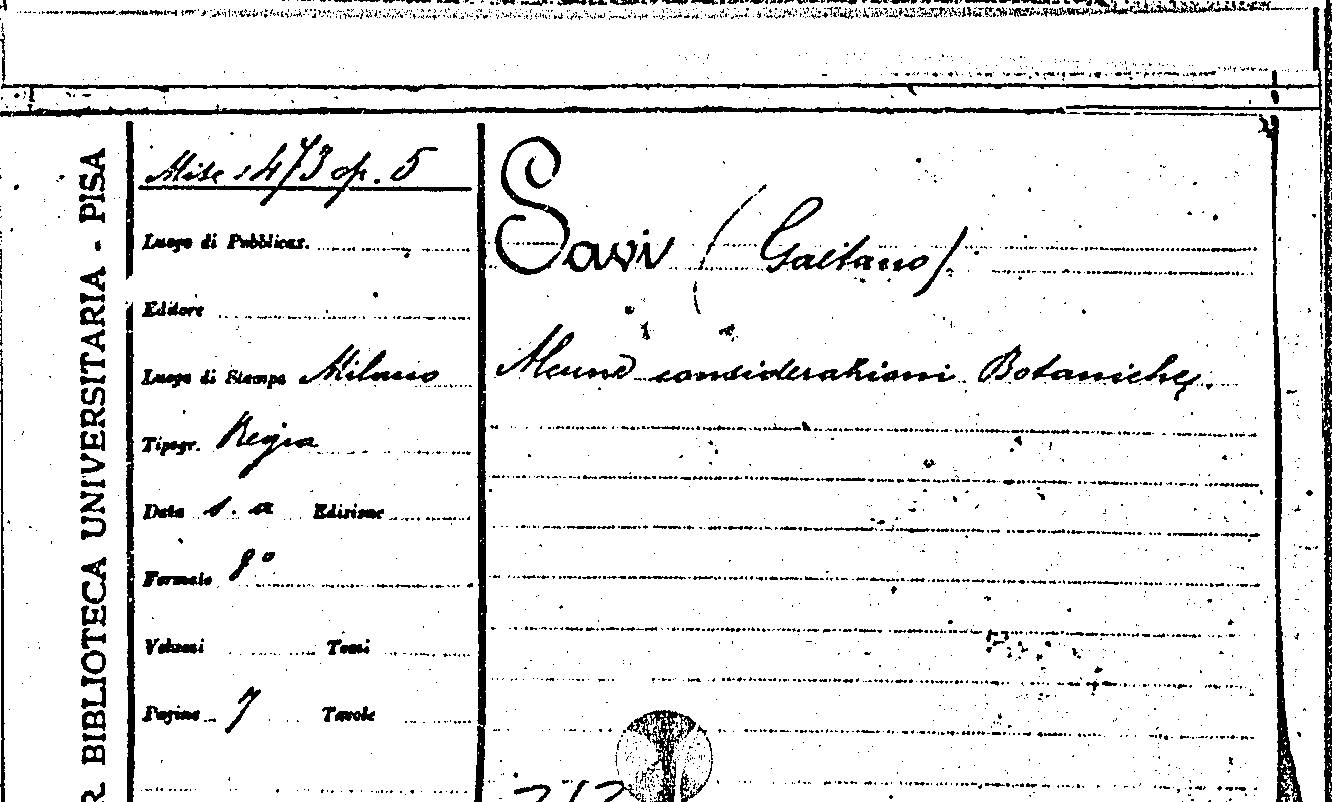 R BIBLIOTECA UNIVERSITARIA - PISA
Misc. 473 op. 5
Luogo di Pubblicaz.
Editore
Luogo di Stampa Milano
Tipogr. Regia
Data s. a Edizione
Formato 8°
Volumi Tomi
Pagine 7 Tavole
Savi (Gaetano)
Alcune considerazioni Botaniche.